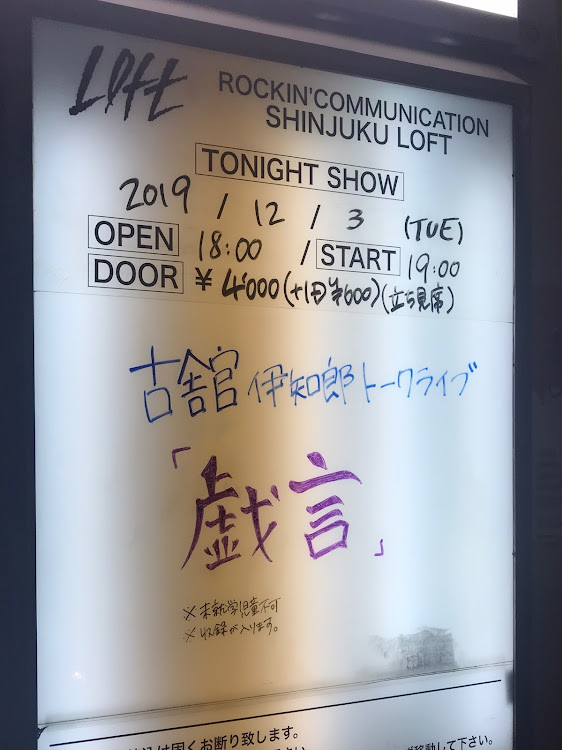 LOFT
ROCKIN'COMMUNICATION
SHINJUKU LOFT
TONIGHT SHOW
2019 / 12 / 3 (TUE)
OPEN 18:00 / START 19:00
DOOR ¥4'000(+1D ¥600)(立ち見席)
古舘伊知郎トークライブ
「戯言」
※未就学児童不可
※収録が入ります。
は固くお断り致します。
移動して下さい。